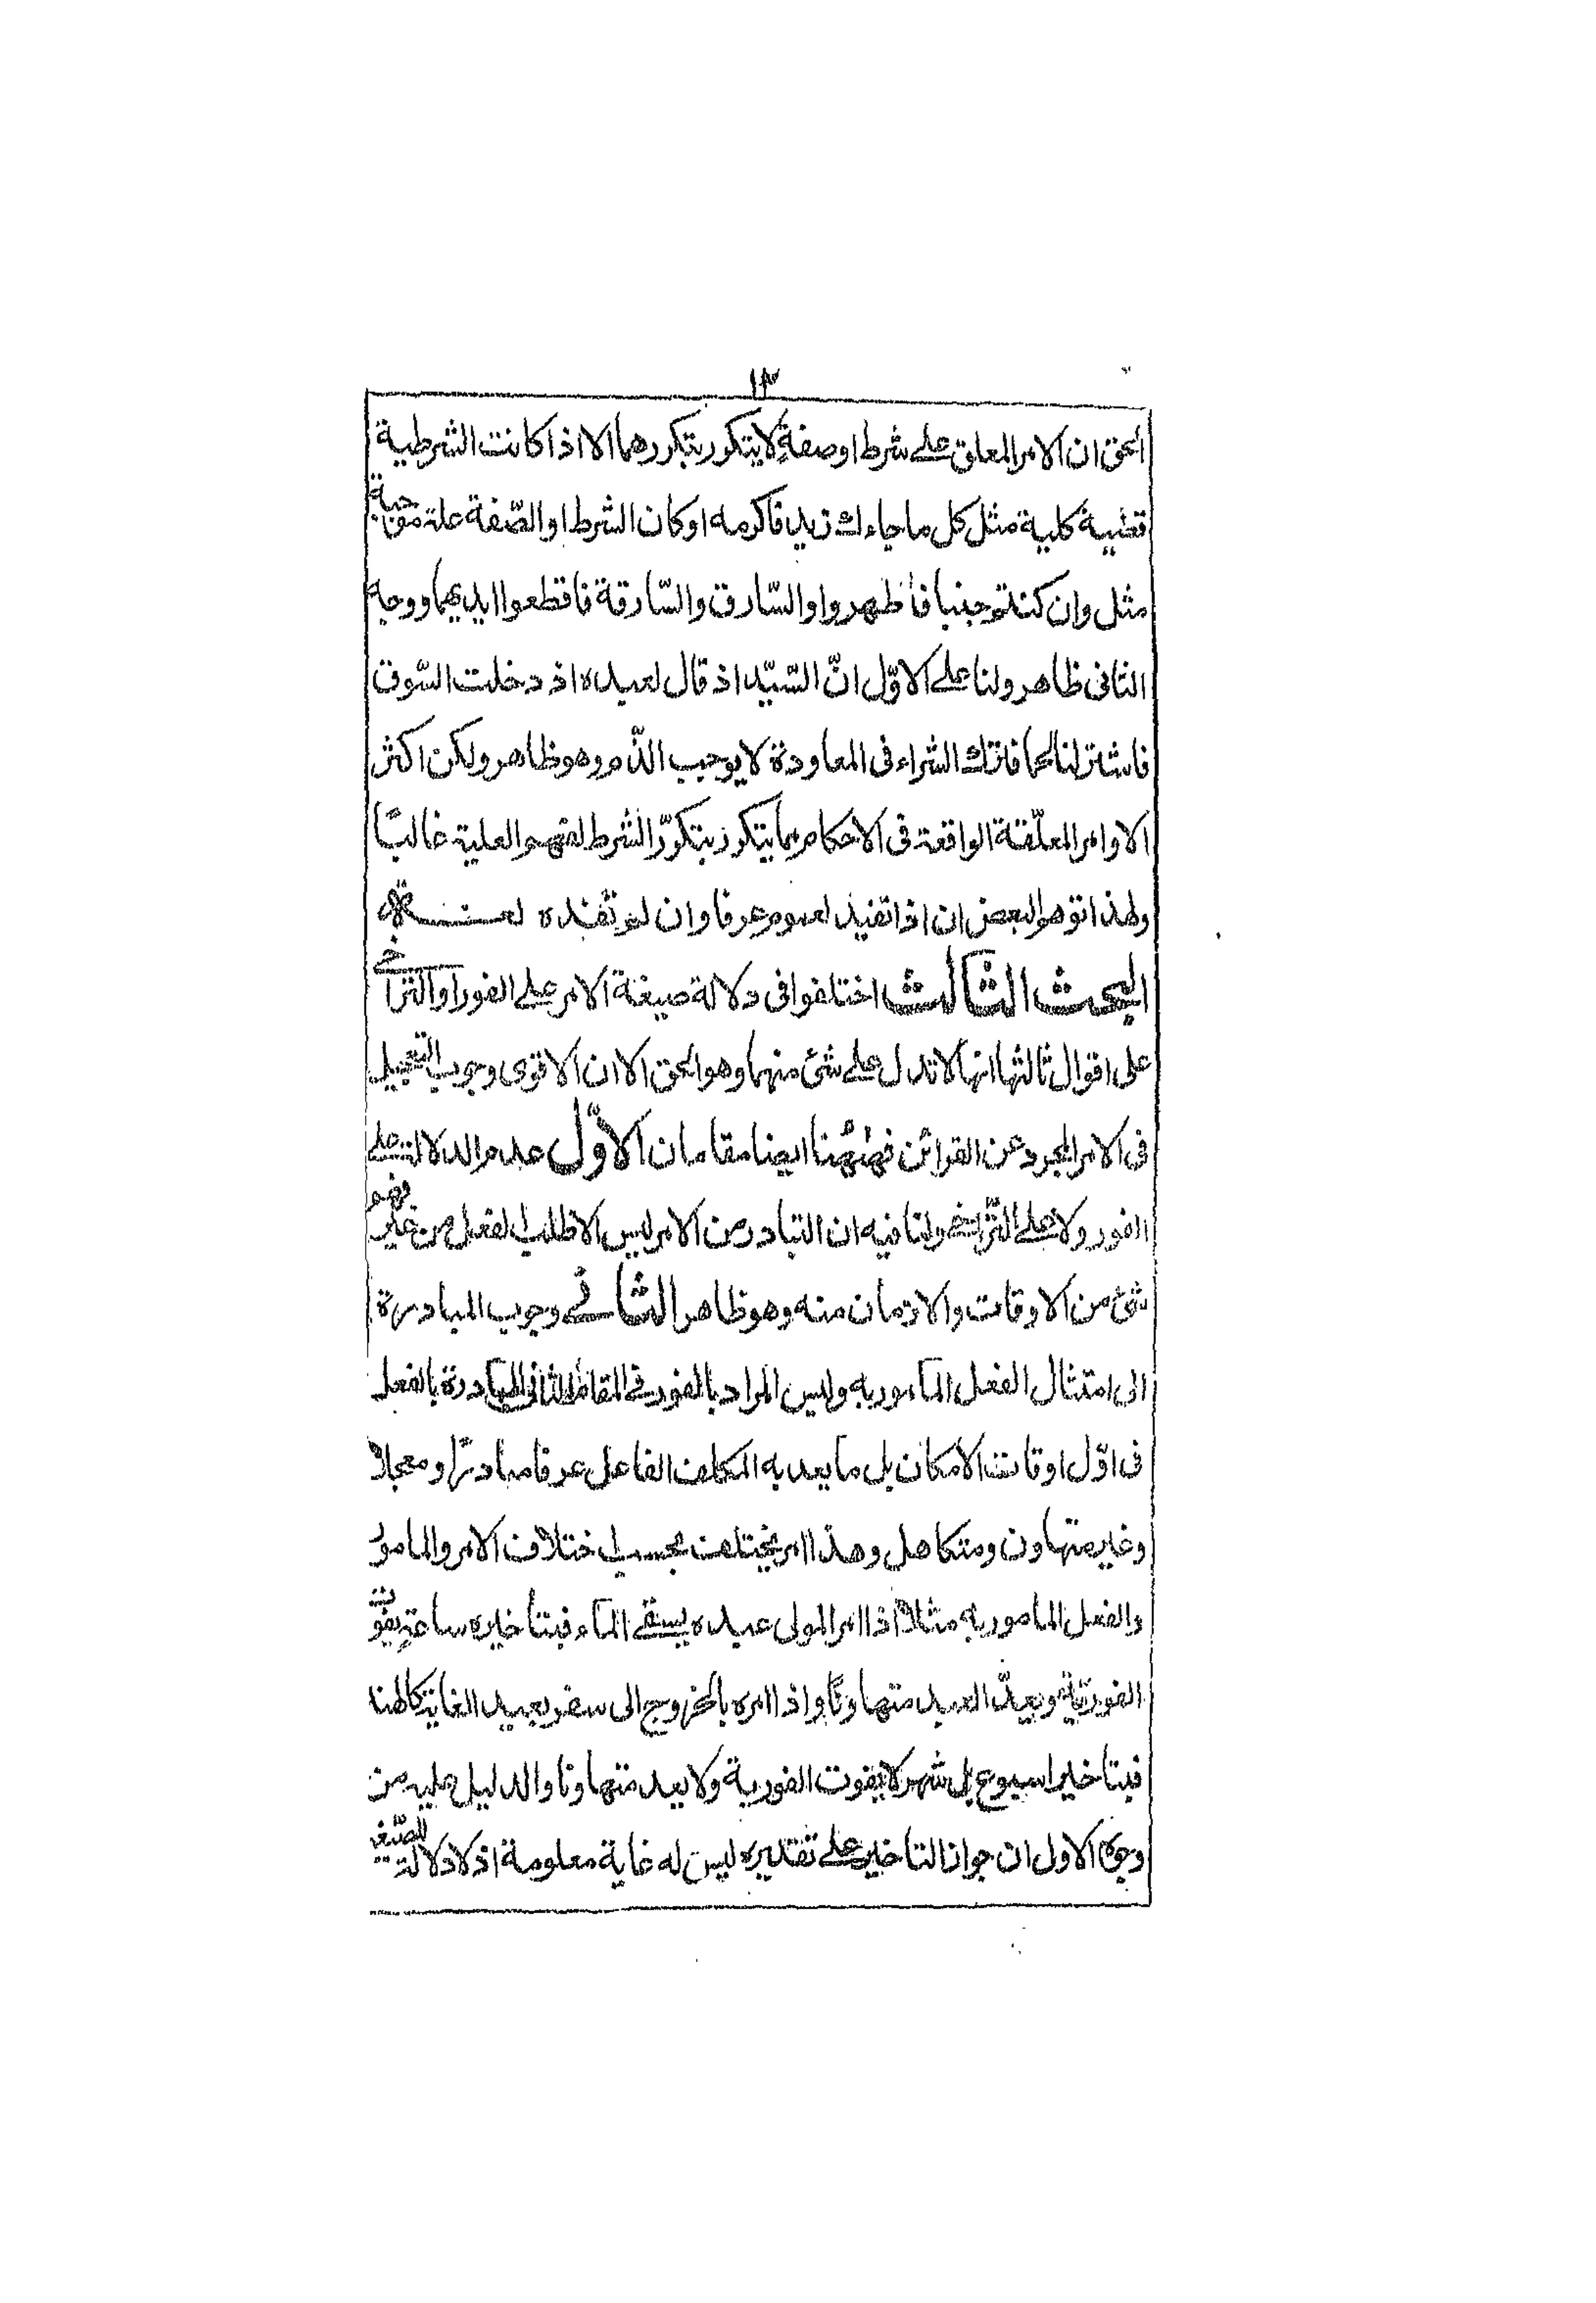 ١٣
الحق ان الامر المعلق على شرط او صفةٍ لا يتكرر بتكررهما الا اذا كانت الشرطية
قضية كلية مثل كل ما جاءك زيد فاكرمه او كان الشرط او الصّفة علة موجبة
مثل وان كنتم جنبا فاطهروا والسّارق والسّارقة فاقطعوا ايديهما ووجه
الثانى ظاهر ولنا على الاوّل انّ السّيّد اذ قال لعبده اذ دخلت السّوق
فاشتر لنا لحما فترك الشراء فى المعاودة لا يوجب الذّم وهو ظاهر ولكن اكثر
الاوامر المعلّقة الواقعة فى الاحكام مما يتكرر بتكرّر الشرط لفهم العلية غالبًا
ولهذا توهم البعض ان اذا تفيد لعموم عرفا وان لم تفده لغة
البحث الثالث اختلفوا فى دلالة صيغة الامر على الفور او التراخے
على اقوال ثالثها انها لا تدل على شئ منهما وهو الحق الا ان الاقوى وجوب التعجيل
فى الامر المجرد عن القرائن فههنا ايضا مقامان الاوّل عدم الدلالة على
الفور ولا على التّراخے ولنا فيه ان التبادر من الامر ليس الا طلب الفعل من غير فهم
شئ من الاوقات والازمان منه وهو ظاهر الثانے وجوب المبادرة
الى امتثال الفعل المأمور به وليس المراد بالفور فے المقام الثانى المبادرة بالفعل
فى اوّل اوقات الامكان بل ما يعد به المكلف الفاعل عرفا مبادرًا ومعجلا
وغير متهاون ومتكاهل وهذا امر يختلف بحسب اختلاف الامر والمامور
والفعل المامور به مثلا اذا امر المولى عبده بسقے المآء فبتأخيره ساعةٍ يفوت
الفوريّة ويعدّ العبد متهاونًا واذا امره بالخروج الى سفر بعيد الغاية كالهند
فبتاخير اسبوع بل شهر لا يفوت الفورية ولا يعد متهاونا والدليل عليه من
وجوه الاول ان جواز التاخير على تقديره ليس له غاية معلومة اذ لا دلالة للصّيغة